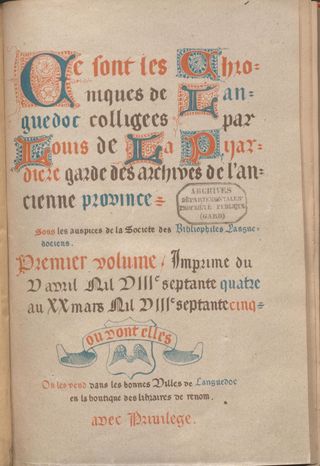 Ce sont les Chro=
niques de Lan=
guedoc colligees par
Louis de La Pijar=
diere garde des archives de l'an=
cienne province=
ARCHIVES
DÉPARTEMENTALES
PROPRIÉTÉ PUBLIQUE
(GARD)
Sous les auspices de la Societe des Bibliophiles Langue=
dociens.
Premier volume, Imprime du
V avril Mil VIIIc septante quatre
au XX mars Mil VIIIc septante cinq=
ou vont elles
On les vend dans les bonnes Villes de Languedoc
en la boutique des libraires de renom.
avec Privilege.